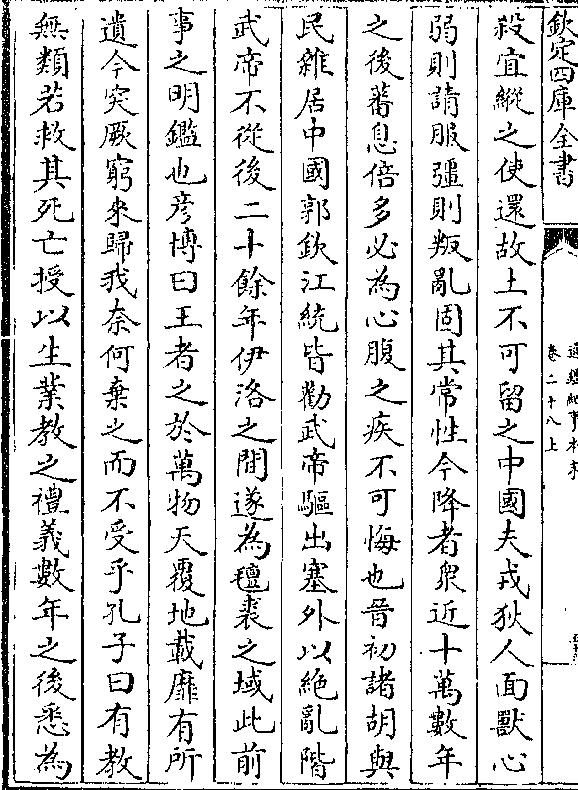 欽定四庫全書
通鑑紀事本末
卷二十八上
殺宜縱之使還故土不可留之中國夫戎狄人面獸心
弱則請服彊則叛亂固其常性今降者衆近十萬數年
之後蕃息倍多必為心腹之疾不可悔也晉初諸胡與
民雜居中國郭欽江統皆勸武帝驅出塞外以絶亂階
武帝不從後二十餘年伊洛之間遂為氊裘之域此前
事之明鑑也彦博曰王者之於萬物天覆地載靡有所
遺今突厥窮來歸我奈何棄之而不受乎孔子曰有教
無類若救其死亡授以生業教之禮義數年之後悉為